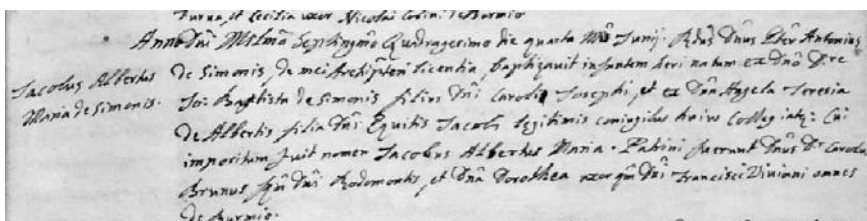 Turna, et Cecilia uxor Nicolai Cosini de Burmio
Anno Dñi Millmo Septingmo Quadragesimo die quarta Mēs Junij. Rdus Dnus Pter Antonius
Jacobus Albertus
Maria de Simonis.
de Simonis, de mei Archipten licentia, baptizavit infantem heri natum ex Dño Dre
Jo: Baptista de Simonis filius Dñi Caroli Josephi, et ex Dña Angela Teresia
de Albertis filia Dñi Equitis Jacobi legitimis coniugibus huius Collegiatę: Cui
impositum fuit nomen Jacobus Albertus Maria. Patrini fuerunt Dnus Dr Carolus
Brunus fqm Dñi Rodomontis, et Dña Dorothea uxor qm Dñi Francisci Viviani omnes
de Burmio.